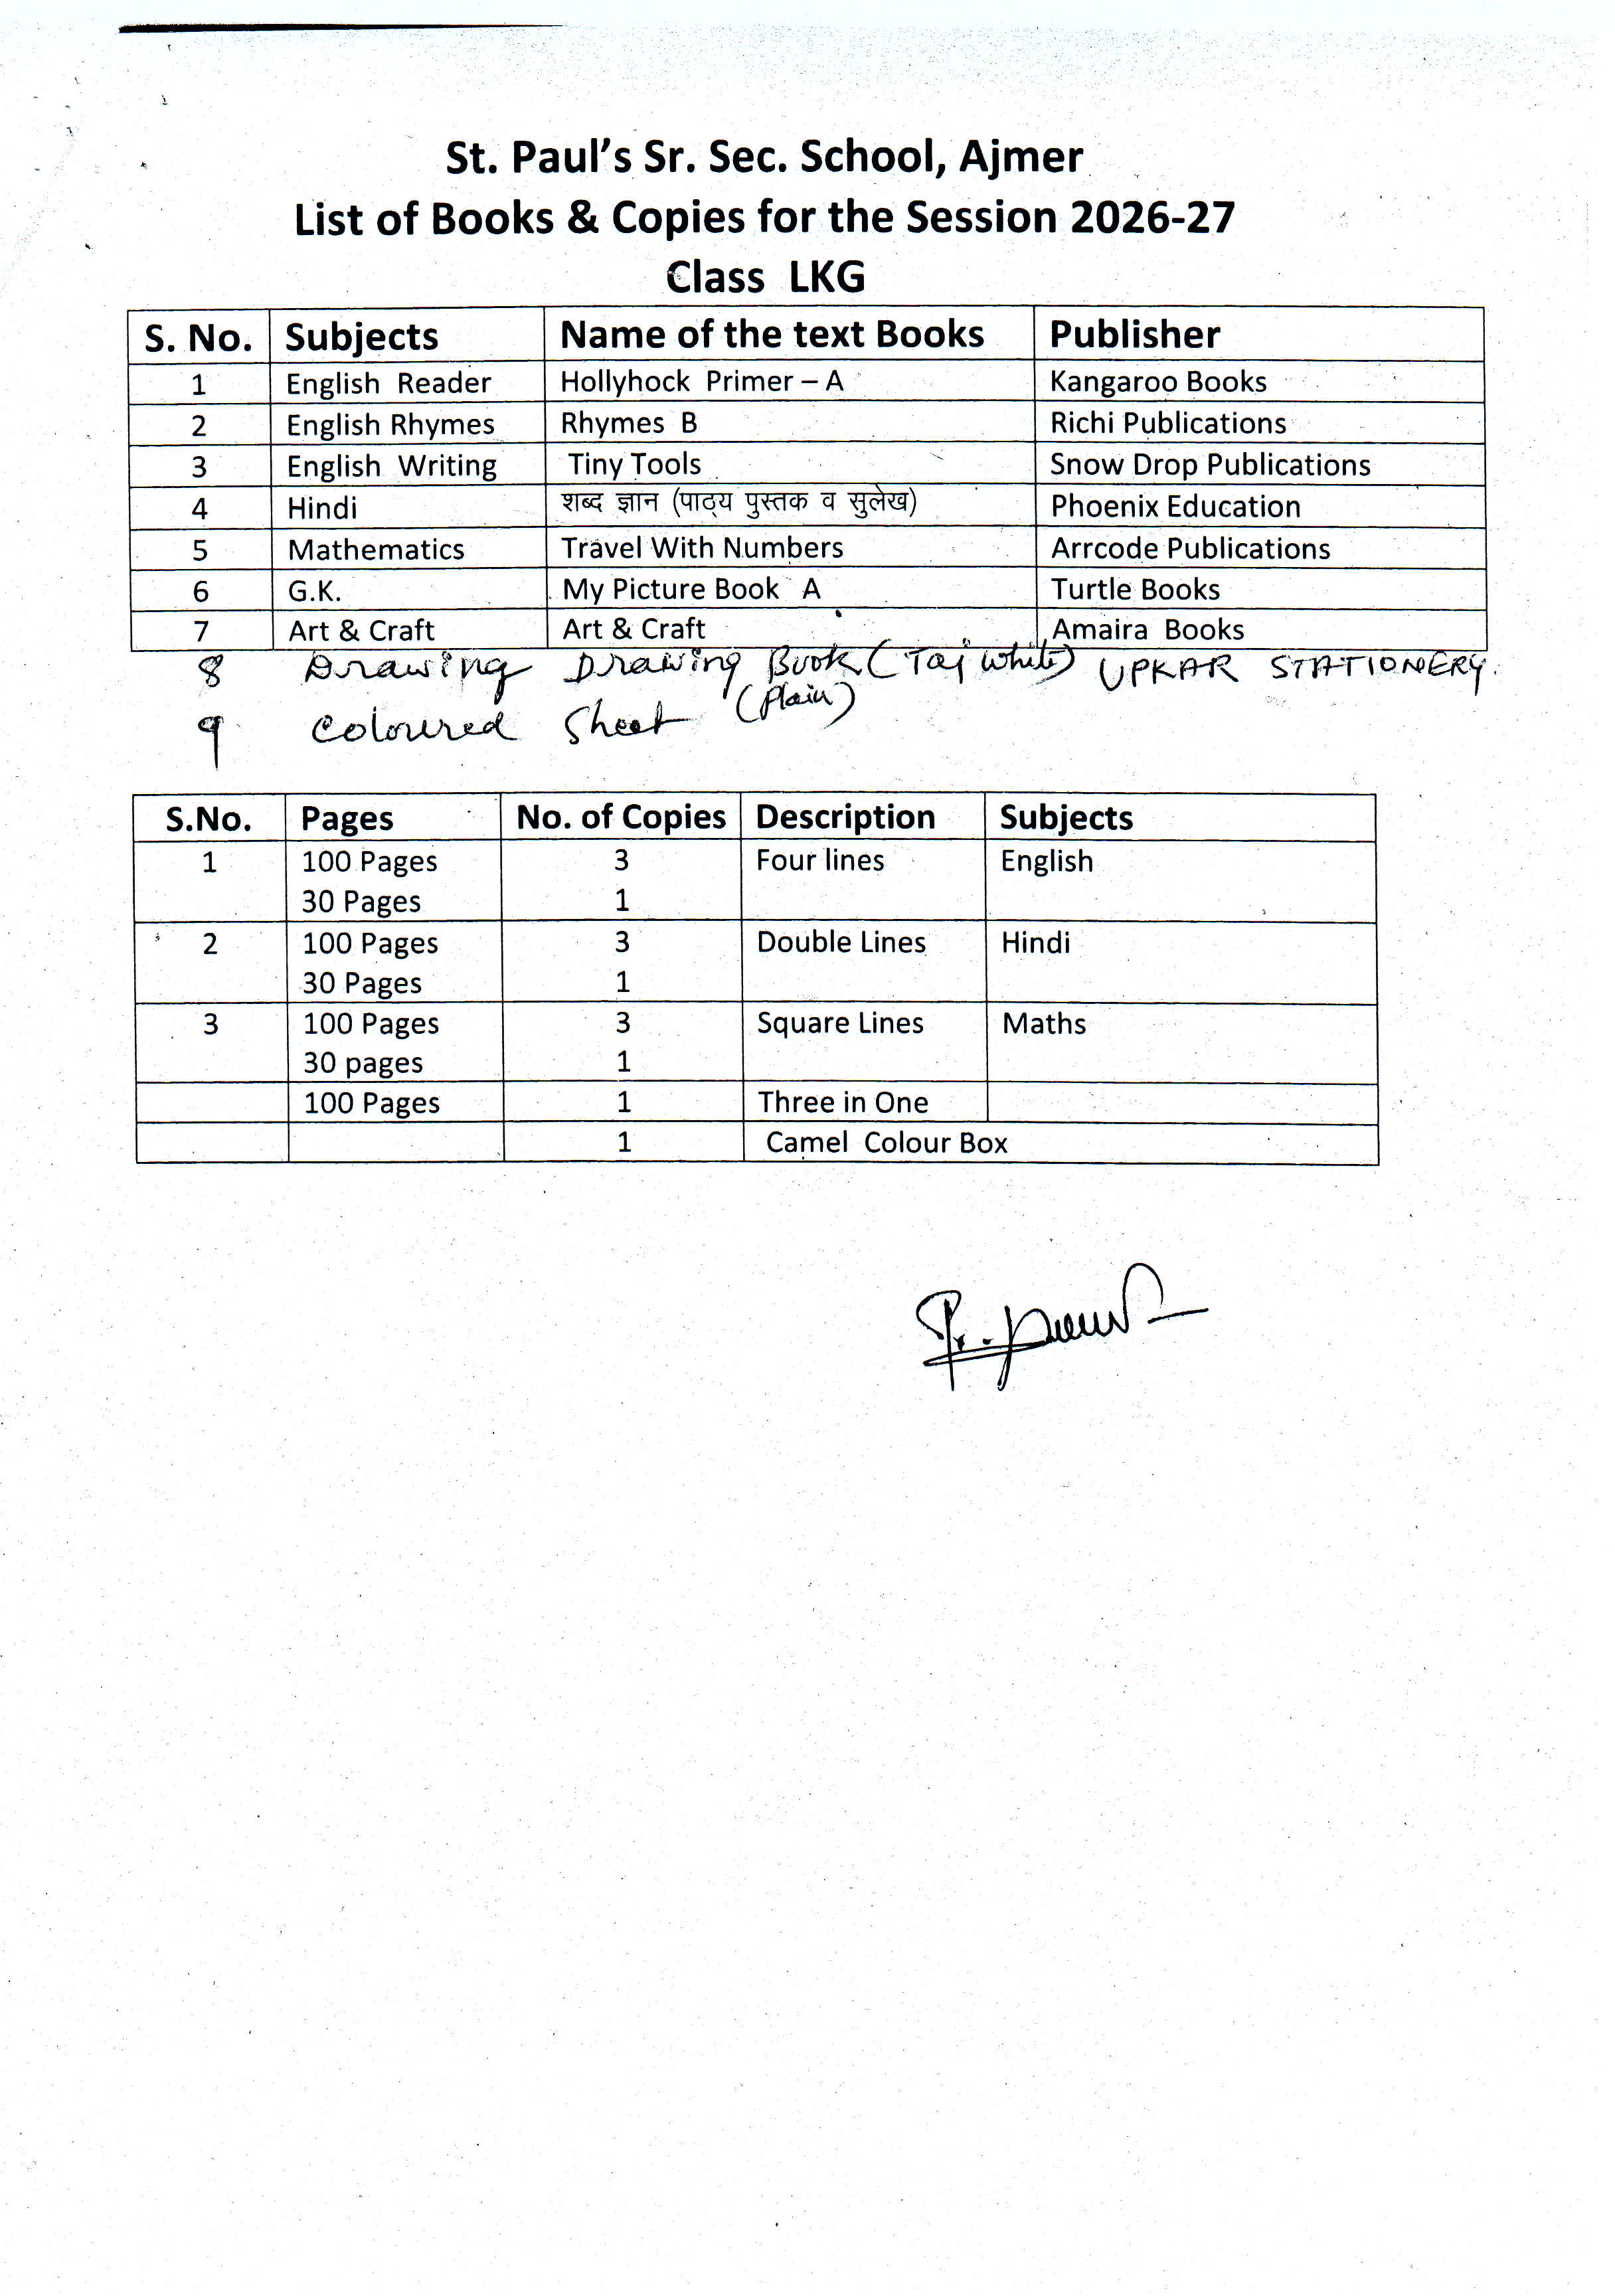 St. Paul's Sr. Sec. School, Ajmer
List of Books & Copies for the Session 2026-27
Class LKG
S. No. Subjects Name of the text Books Publisher
1 English Reader Hollyhock Primer – A Kangaroo Books
2 English Rhymes Rhymes B Richi Publications
3 English Writing Tiny Tools Snow Drop Publications
4 Hindi शब्द ज्ञान (पाठ्य पुस्तक व सुलेख) Phoenix Education
5 Mathematics Travel With Numbers Arrcode Publications
6 G.K. My Picture Book A Turtle Books
7 Art & Craft Art & Craft Amaira Books
8 Drawing Drawing Book (Taj White) UPKAR STATIONERY.
(Plain)
9 Coloured Sheet
S.No. Pages No. of Copies Description Subjects
1 100 Pages 3 Four lines English
30 Pages 1
2 100 Pages 3 Double Lines Hindi
30 Pages 1
3 100 Pages 3 Square Lines Maths
30 pages 1
100 Pages 1 Three in One
1 Camel Colour Box